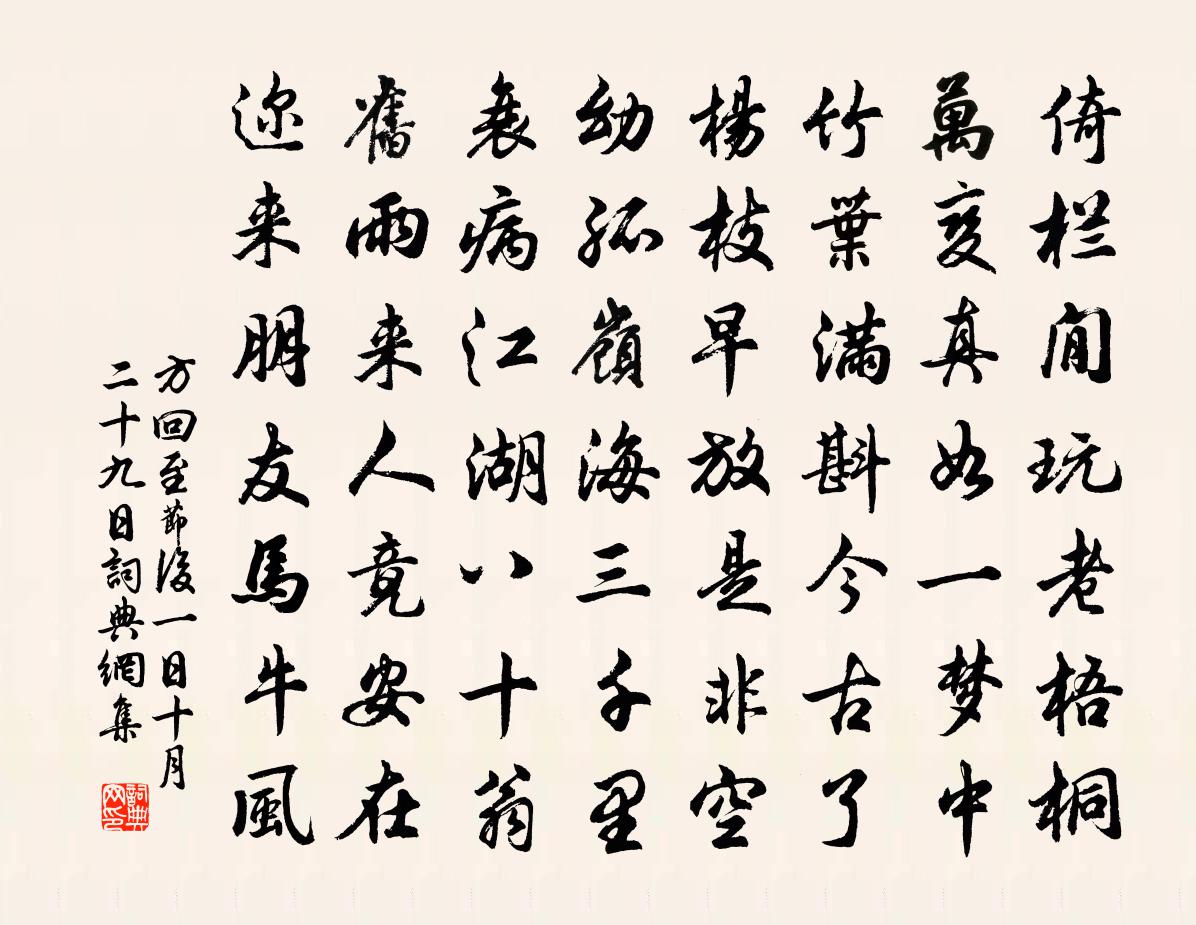 倚栏閒玩老梧桐
萬变真如一梦中
竹葉满斟今古了
楊枝早放是非空
幼孤嶺海三千里
衰病江湖八十翁
舊雨来人竟安在
迩来朋友馬牛風
方回至節後一日十月
二十九日詞典網集
詞典
网印